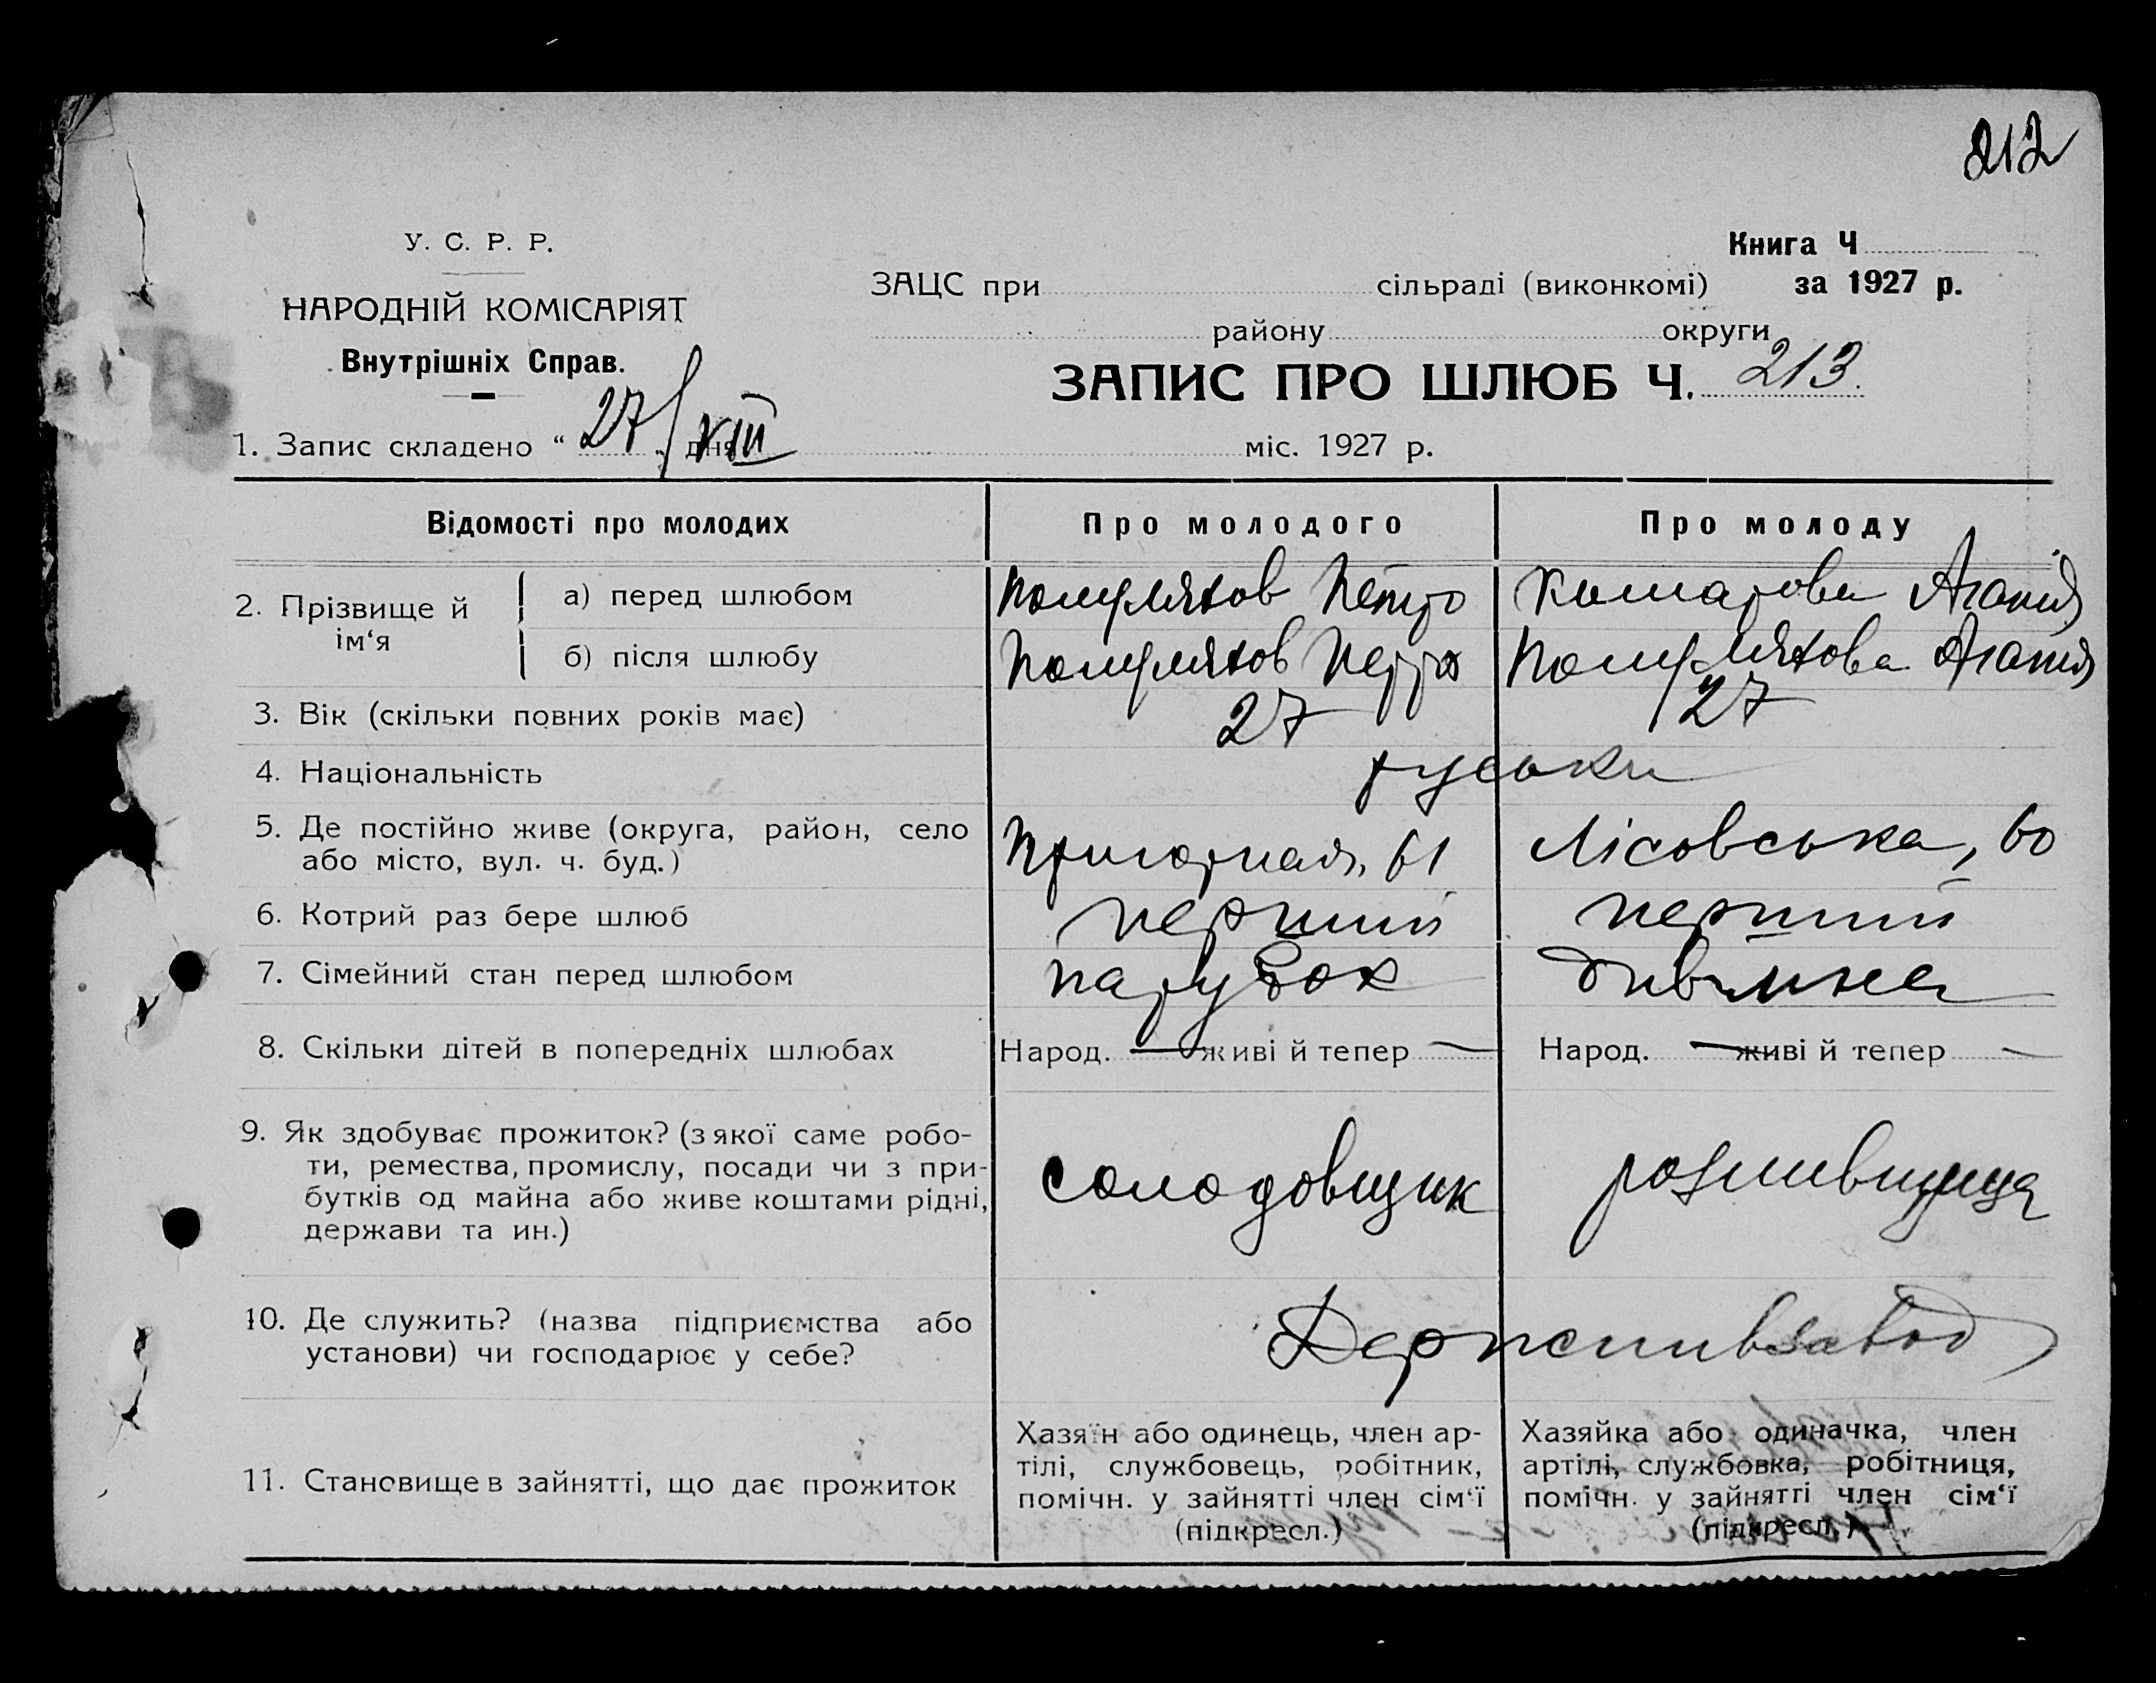 212
У. С. Р. Р.
НАРОДНІЙ КОМІСАРІЯТ
Внутрішніх Справ.
Книга Ч
ЗАЦС при сільраді (виконкомі) за 1927 р.
району округи
ЗАПИС ПРО ШЛЮБ Ч. 213.
1. Запис складено “ 27/VIII дня міс. 1927 р.
Відомості про молодих Про молодого Про молоду
2. Прізвище й ім‘я
а) перед шлюбом Петро Агапія
б) після шлюбу Петро Агапія
3. Вік (скільки повних років має) 27 27
4. Національність руськи
5. Де постійно живе (округа, район, село Лісовська, 60
або місто, вул. ч. буд.) 61
6. Котрий раз бере шлюб перший перший
7. Сімейний стан перед шлюбом парубок дивчина
8. Скільки дітей в попередніх шлюбах Народ. — живі й тепер — Народ. — живі й тепер —
9. Як здобуває прожиток? (з якої саме робо-
ти, ремества, промислу, посади чи з при-
бутків од майна або живе коштами рідні,
держави та ин.)
солодовщик розливщица
10. Де служить? (назва підприємства або
установи) чи господарює у себе?
Держпивзавод
11. Становище в зайнятті, що дає прожиток
Хазяїн або одинець, член ар-
тілі, службовець, робітник,
помічн. у зайнятті член сім‘ї
(підкресл.)
Хазяйка або одиначка, член
артілі, службовка, робітниця,
помічн. у зайнятті член сім‘ї
(підкресл.)